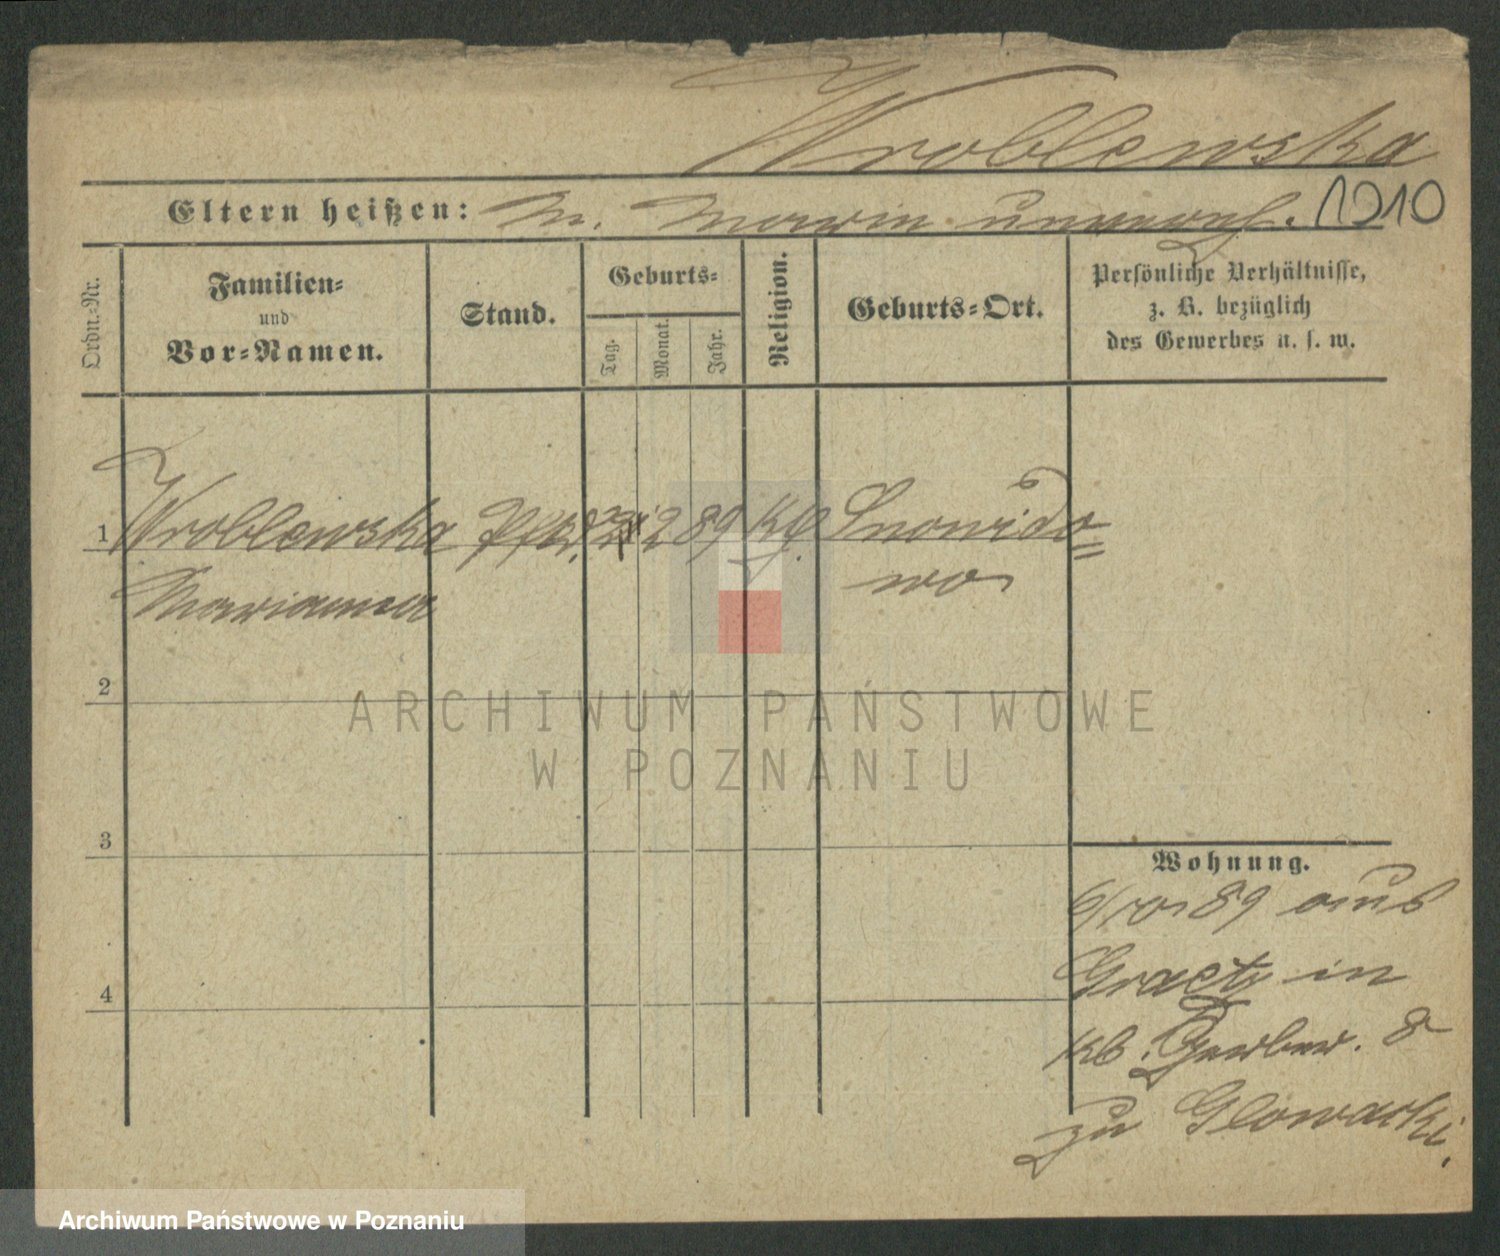 Wroblewska
Eltern heißen: M. Marrin unverehl. 1210
Ordn.-Nr.
Familien-
und
Vor-Namen.
Stand.
Geburts-
Tag.
Monat.
Jahr.
Religion.
Geburts-Ort.
Persönliche Verhältnisse,
z. B. bezüglich
des Gewerbes u. s. w.
1 Wroblewska 2 89 kth Snowido=
Marianna wo
2
ARCHIWUM PAŃSTWOWE
W POZNANIU
3
Wohnung.
6/10 89 aus
Graetz in
4
Kl. Gerber. 8
zu Glowacki.
Archiwum Państwowe w Poznaniu